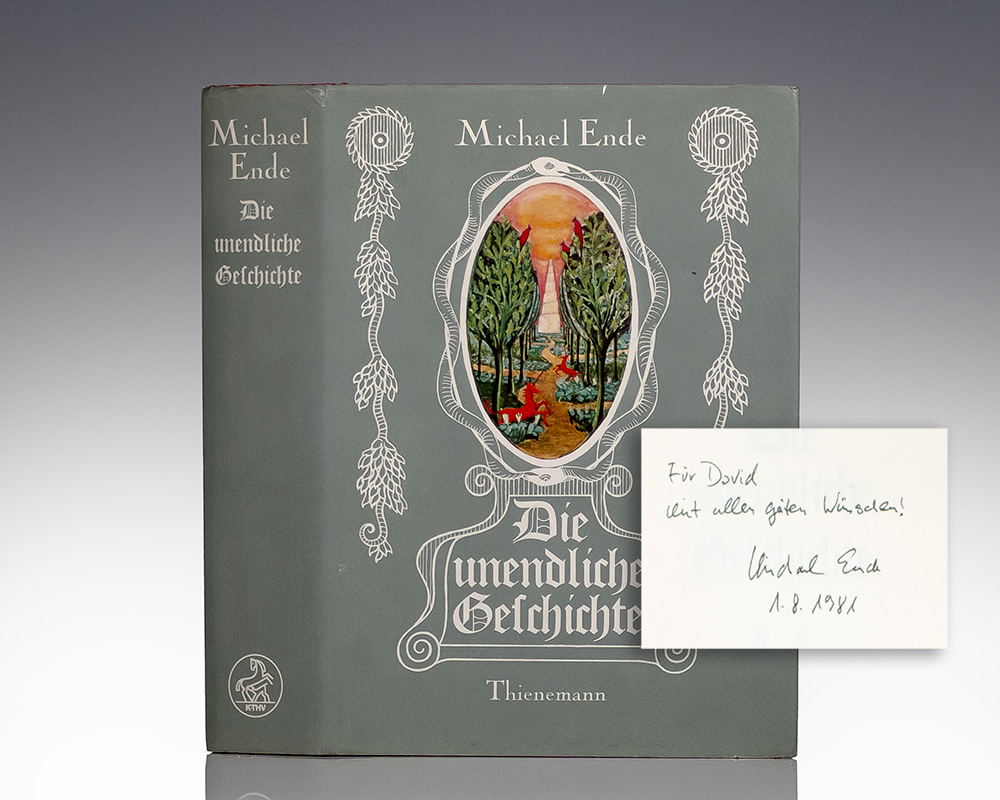 Michael
Ende
Die
unendliche
Geſchichte
K·THV
Michael Ende
Die
unendliche
Geſchichte
Thienemann
Für David
mit allen guten Wünschen!
Michael Ende
1.8.1981